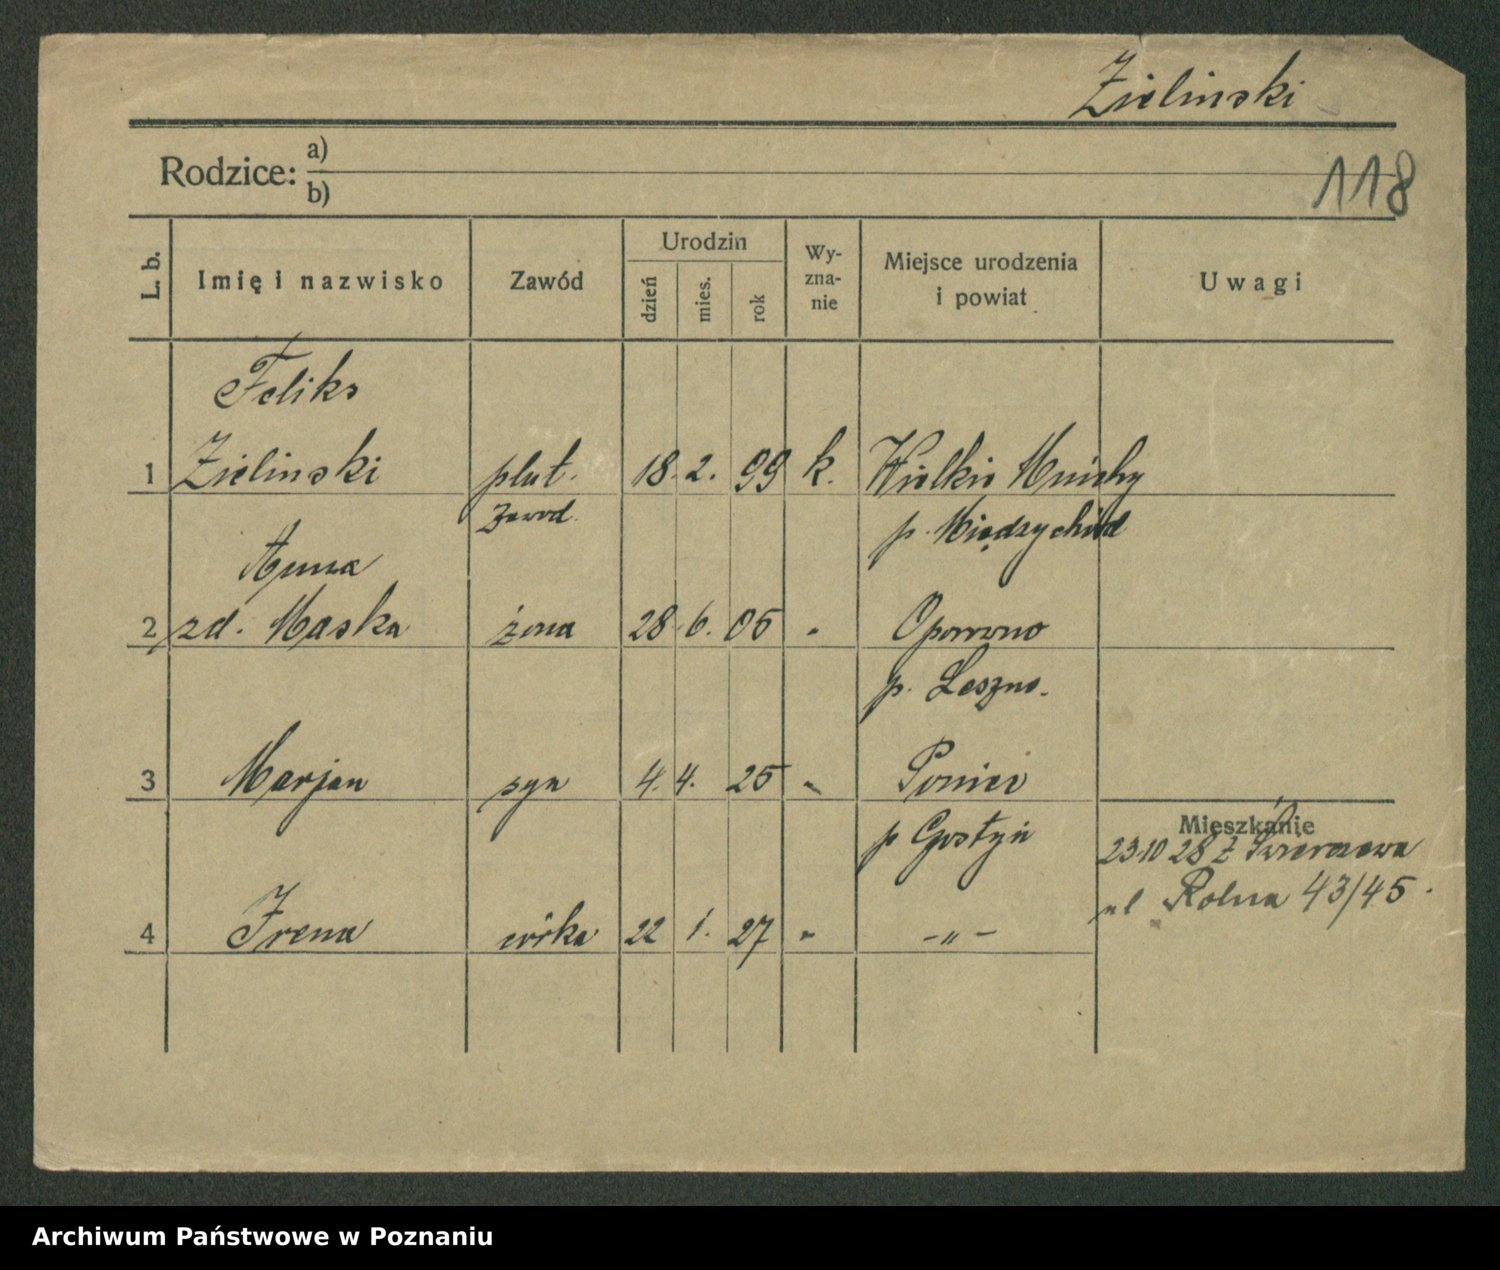 Zielinski
Rodzice: a)
b)
118
L. b.
Imię i nazwisko
Zawód
Urodzin
dzień
mies.
rok
Wy-
zna-
nie
Miejsce urodzenia
i powiat
Uwagi
Feliks
1 Zielinski plut. 18. 2. 99 k. Wielkie Mnichy
zawod. p. Międzychód
Anna
2 zd. Maska żona 28. 6. 05 " Oporowo
p. Leszno.
3 Marjan syn 4. 4. 25 " Poniec
p Gostyń
Mieszkanie
23.10 28 Z Świerczewa
ul Rolna 43/45.
4 Irena córka 22 1. 27 " -„-
Archiwum Państwowe w Poznaniu